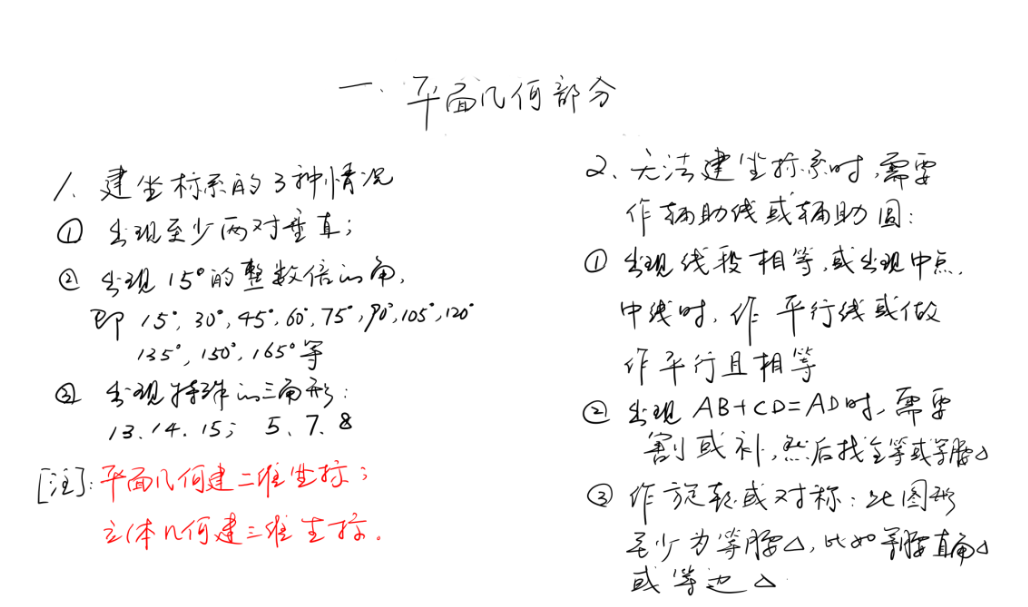 一、平面几何部分
1、建坐标系的3种情况
① 出现至少两对垂直；
② 出现15°的整数倍的角,
即 15°, 30°, 45°, 60°, 75°, 90°, 105°, 120°
135°, 150°, 165°等
③ 出现特殊的三角形：
13、14、15； 5、7、8
[注]：平面几何建二维坐标；
立体几何建三维坐标。
2、无法建坐标系时,需要
作辅助线或辅助圆：
① 出现线段相等,或出现中点,
中线时,作平行线或做
作平行且相等
② 出现AB+CD=AD时,需要
割或补,然后找全等或等腰△
③ 作旋转或对称：此图形
至少为等腰△,比如等腰直角△
或等边△